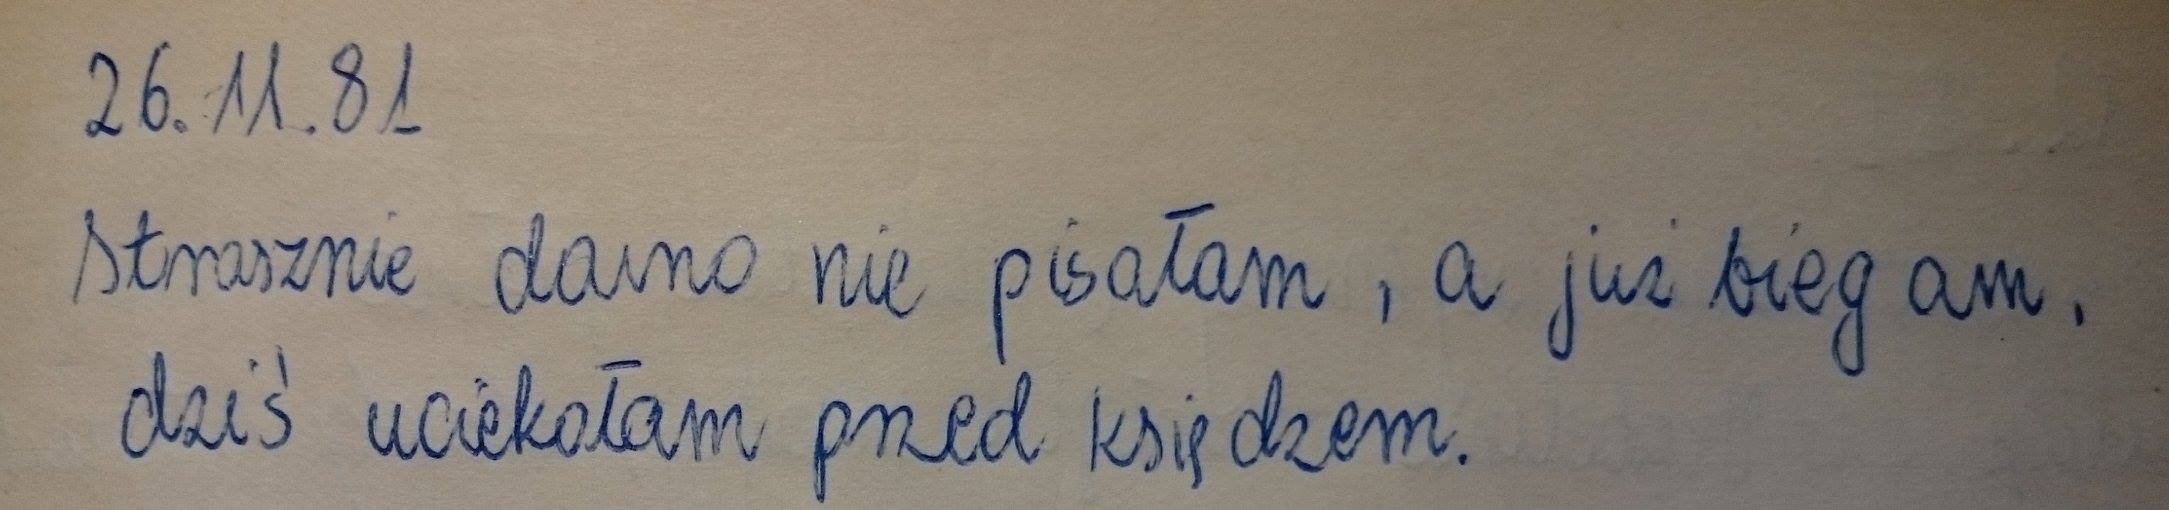 26.11.81
Strasznie dawno nie pisałam, a już biegam.
dziś uciekałam przed księdzem.